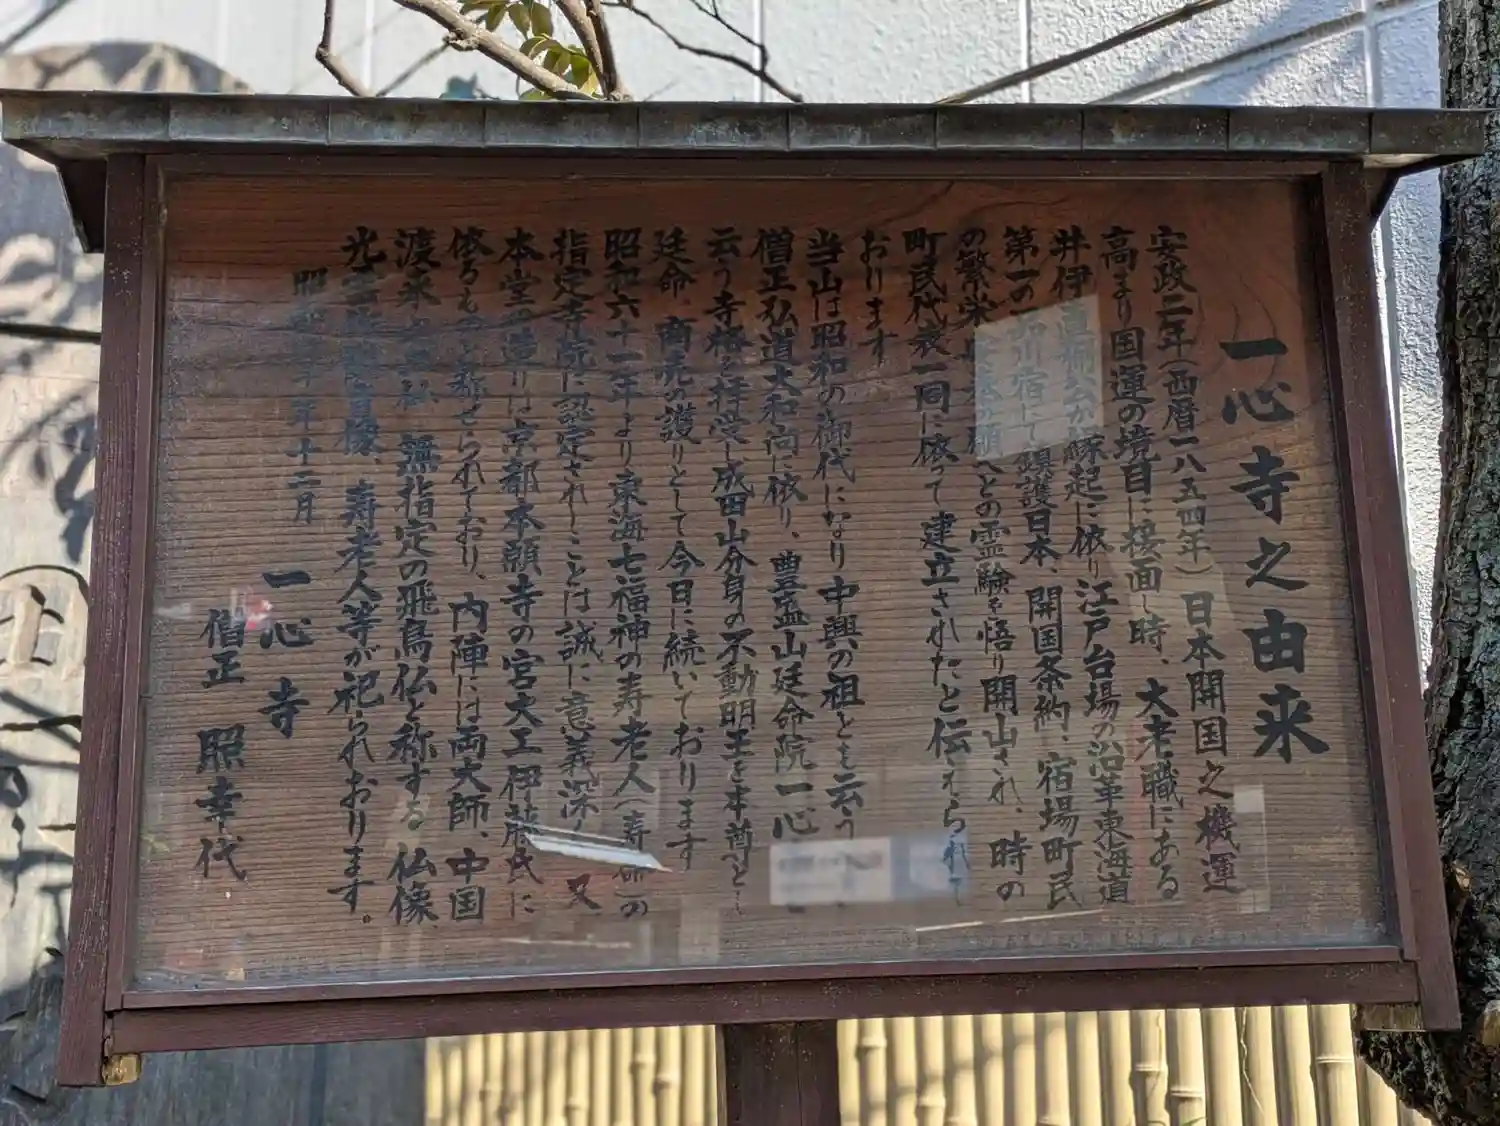 一心寺之由来
安政二年(西暦一八五四年)日本開国之機運
高まり国運の境目に接面し時、大老職にある
井伊直弼公が縁起に依り江戸台場の沿革東海道
第一の品川宿にて鎮護日本、開国条約、宿場町民
の繁栄 へとの霊験を悟り開山され、時の
町民代表一同に依って建立されたと伝えられて
おります
当山は昭和の御代になり中興の祖とも云う
僧正弘道大和尚に依り、豊盛山延命院一心
云う寺格を拝受し成田山分身の不動明王を本尊とし
延命、商売の護りとして今日に続いております
昭和六十一年より東海七福神の寿老人(寿命)の
指定寺院に認定されしことは誠に意義深く又
本堂の造りは京都本願寺の宮大工伊藤氏に
依るものと称せられており、内陣には両大師、中国
渡来 仏 無指定の飛鳥仏と称する仏像
光雲 像、寿老人等が祀られおります。
昭 年十二月
一心寺
僧正 照幸代